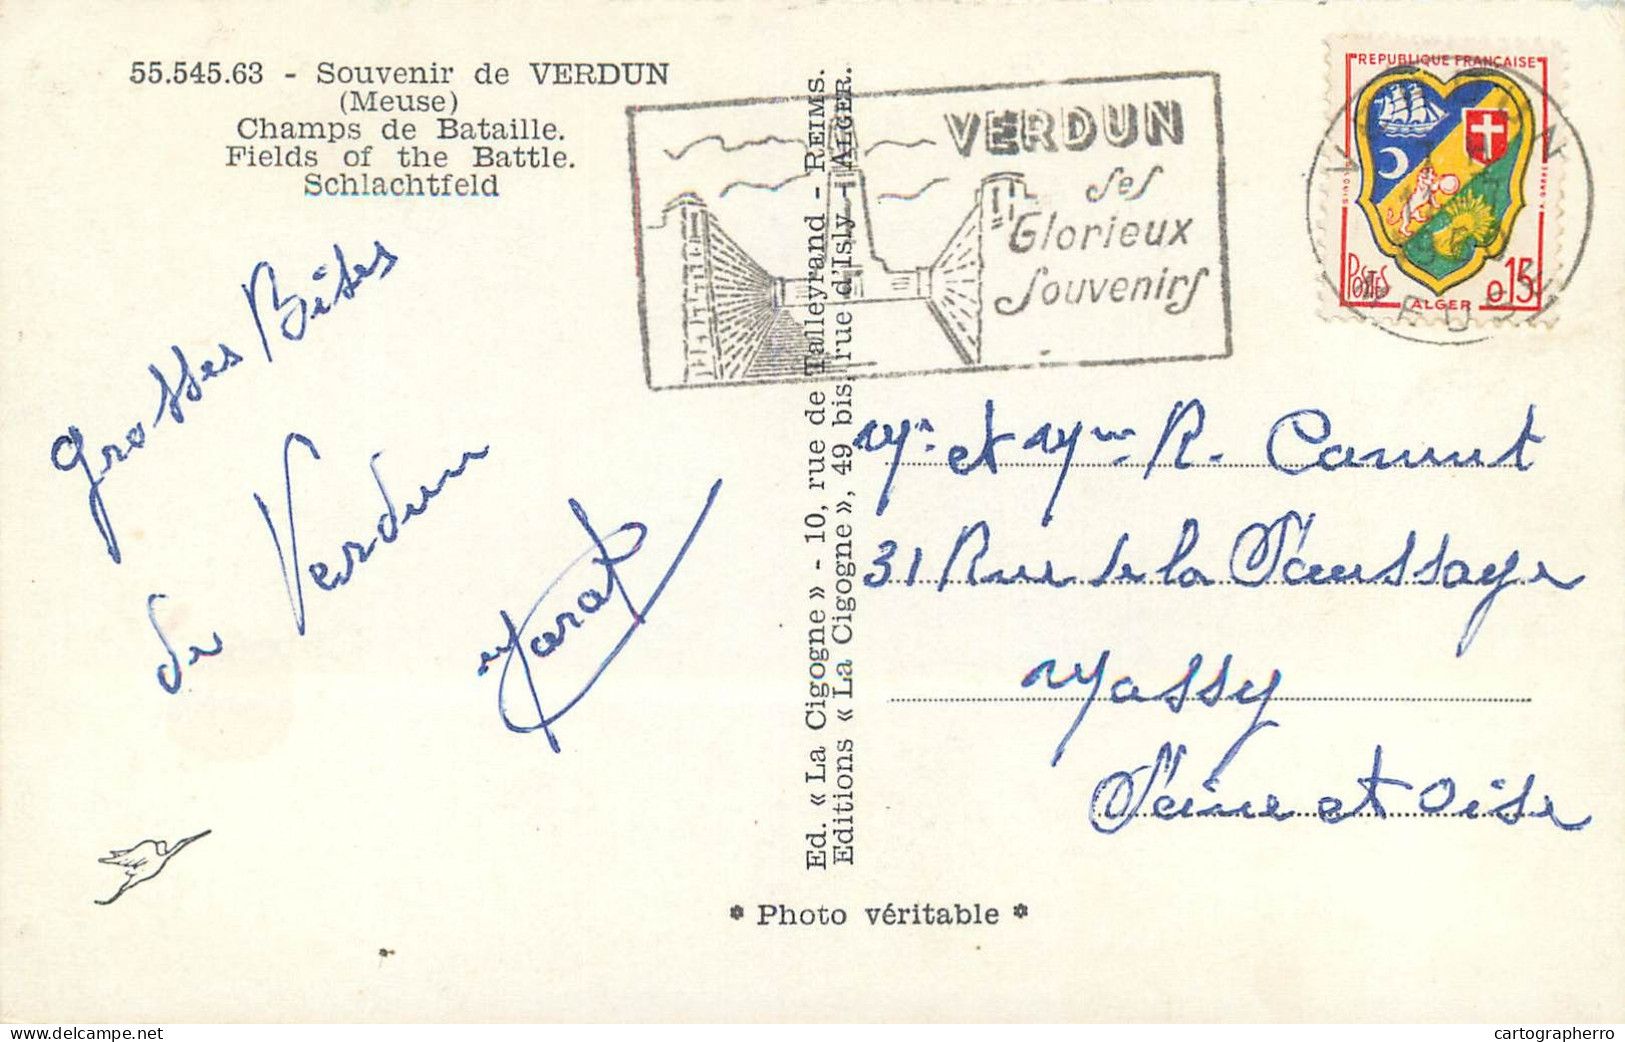 55.545.63 - Souvenir de VERDUN
(Meuse)
Champs de Bataille.
Fields of the Battle.
Schlachtfeld
VERDUN
ses
Glorieux
Souvenirs
REPUBLIQUE FRANÇAISE
POSTES
ALGER
0,15
MEUSE
Grosses Bises
de Verdun
Ed. « La Cigogne » - 10, rue de Talleyrand - REIMS.
Editions « La Cigogne », 49 bis, rue d'Isly - ALGER.
Mr et Mme R. Canut
31 Rue de la Saussaye
Massy
Seine et Oise
* Photo véritable *
cartographerro